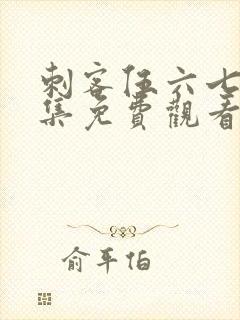 刺客伍六七
集免費觀看
俞平伯